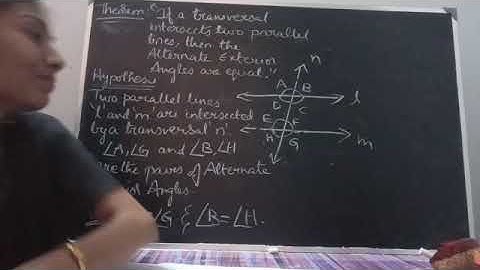 Theorem "If a transversal
intersects two parallel
lines, then the
Alternate Exterior
Angles are equal."
Hypothesis
Two parallel lines
'l' and 'm' are intersected
by a transversal 'n'.
∠A, ∠G and ∠B, ∠H
are the pairs of Alternate
Angles.
∠G & ∠B = ∠H.
n
A B
l
D C
E F
m
H G